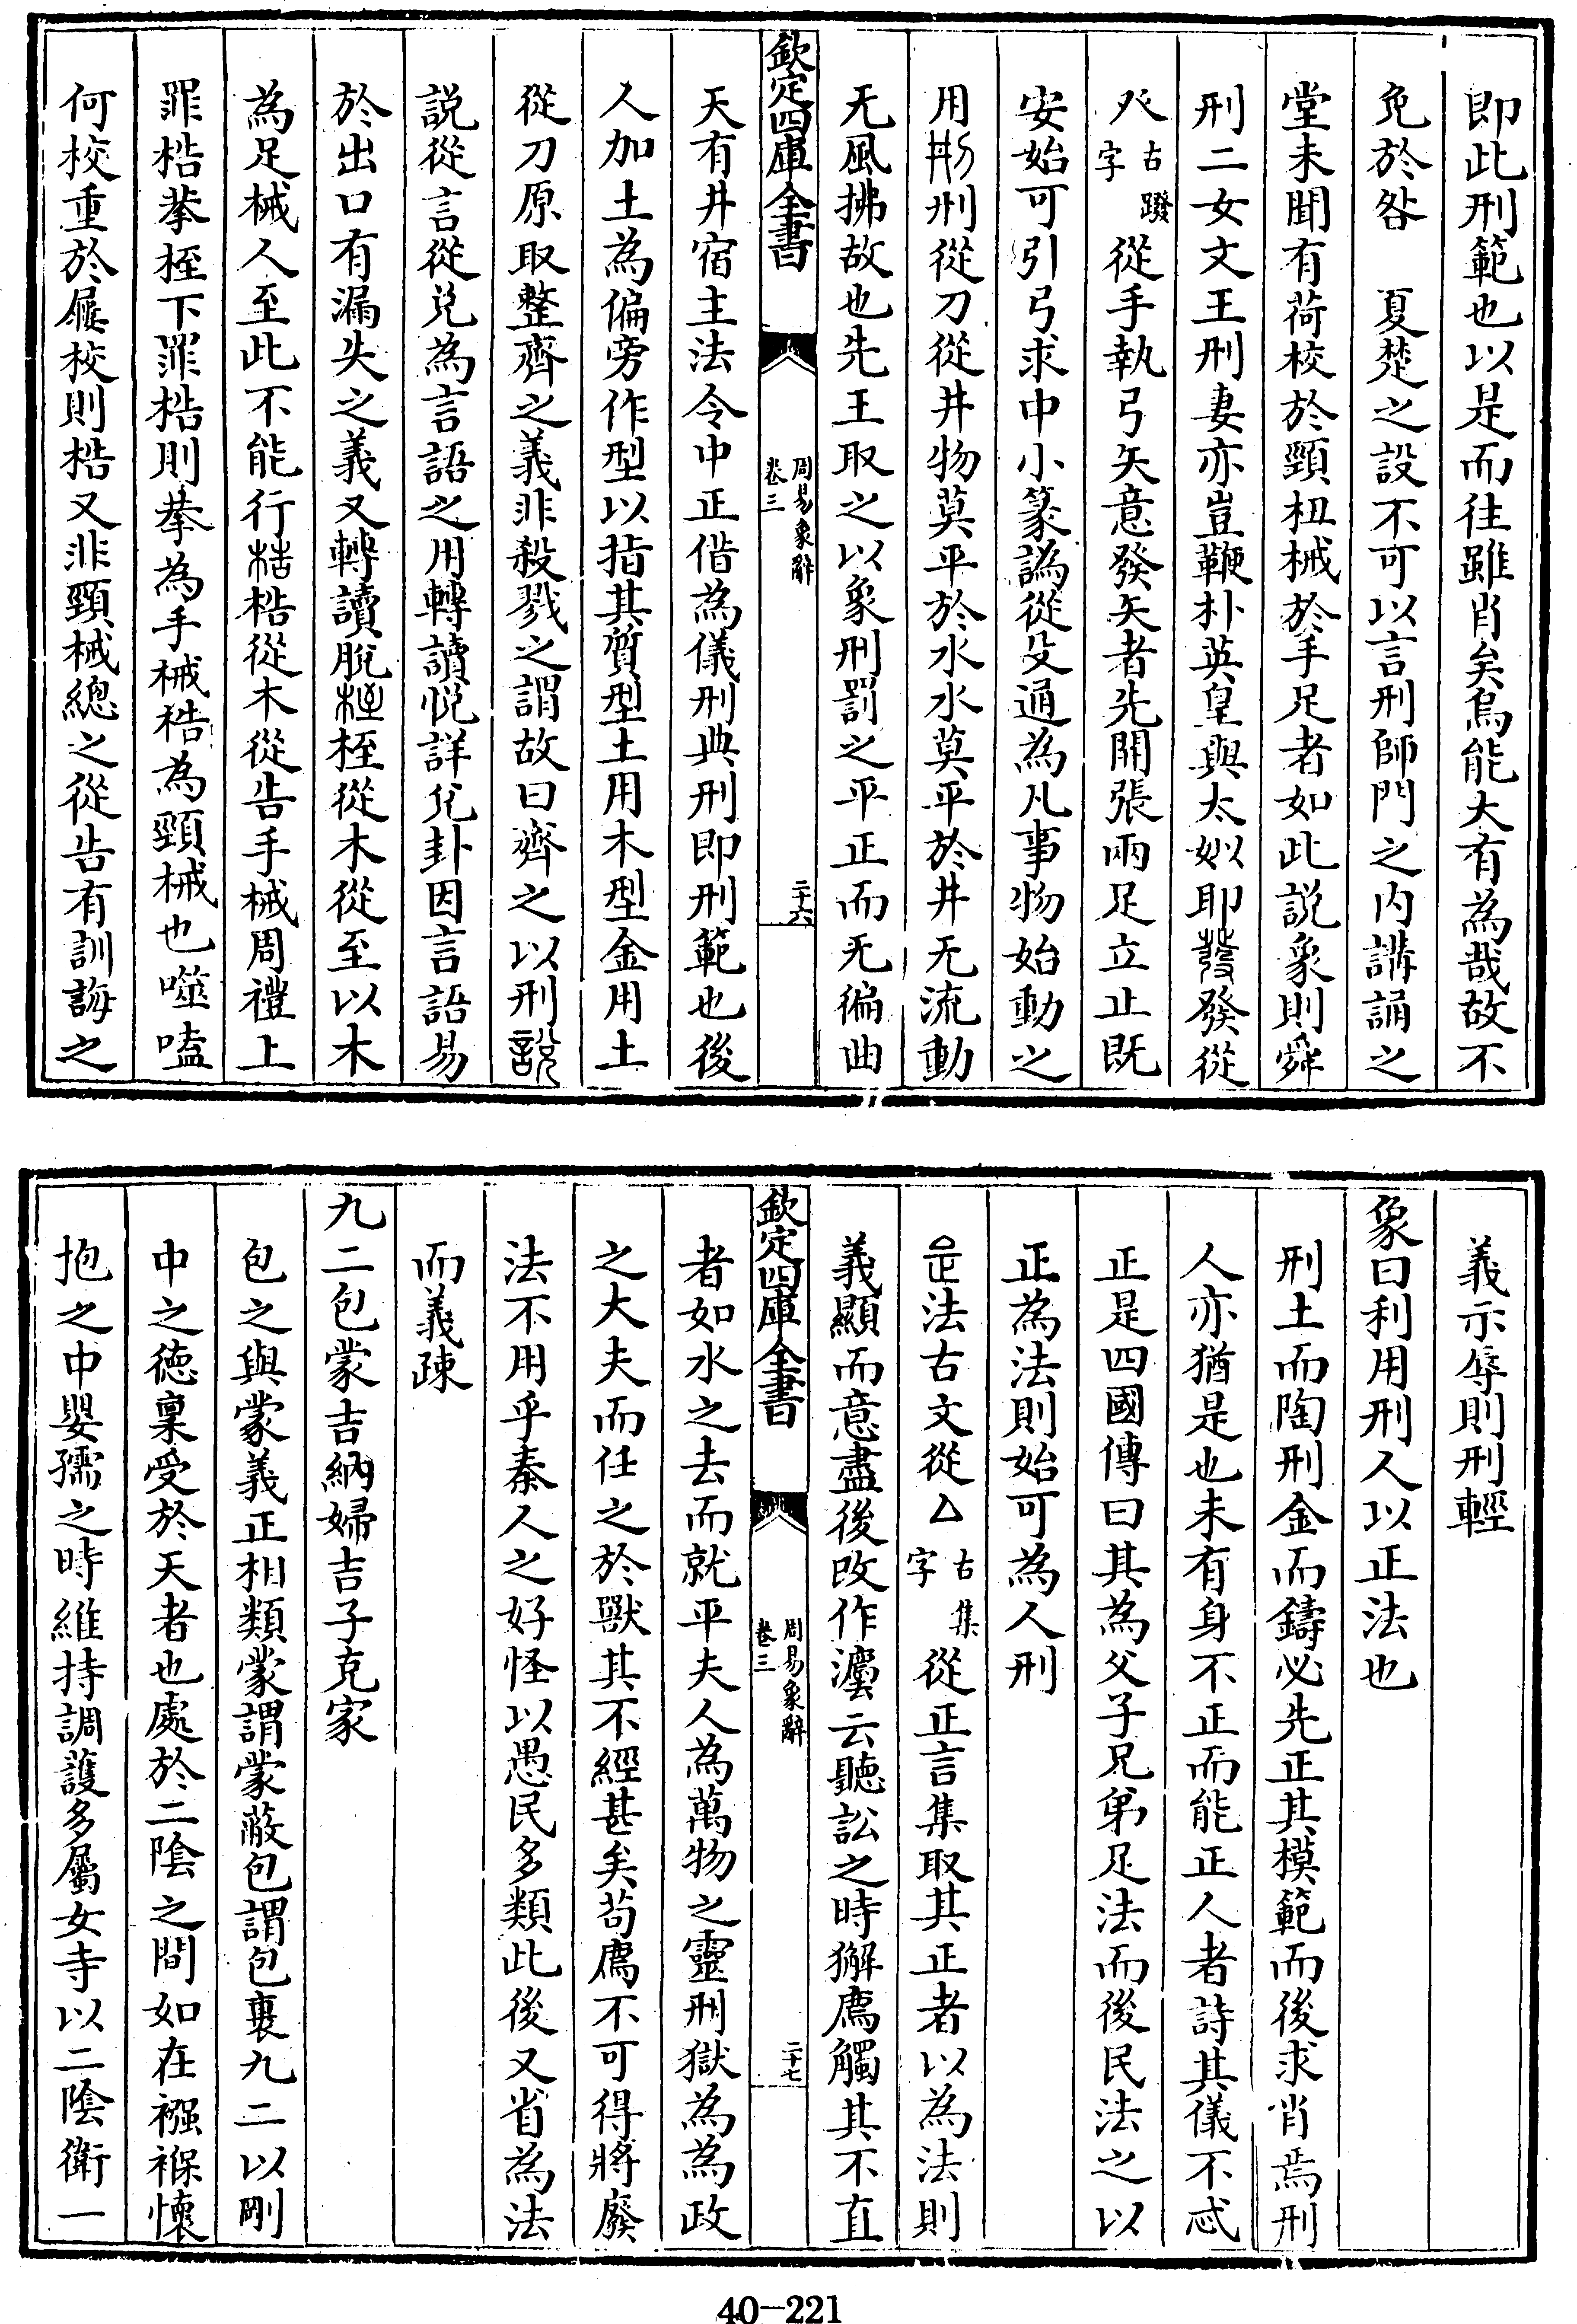 即此刑範也以是而往雖肖矣烏能大有為哉故不
免於咎　夏楚之設不可以言刑師門之内講誦之
堂未聞有荷校於頸杻械於手足者如此説象則舜
刑二女文王刑妻亦豈鞭朴英皇與太姒耶發從
癶古蹳字從手執弓矢意發矢者先開張兩足立止既
安始可引弓求中小篆譌從殳通為凡事物始動之
用刑從刀從井物莫平於水水莫平於井无流動
无風拂故也先王取之以象刑罰之平正而无徧曲
欽定四庫全書
周易象辭
卷三
二十六
天有井宿主法令中正借為儀刑典刑即刑範也後
人加土為偏旁作型以指其質型土用木型金用土
從刀原取整齊之義非殺戮之謂故曰齊之以刑
説從言從兑為言語之用轉讀悦詳兑卦因言語易
於出口有漏失之義又轉讀脫桎從木從至以木
為足械人至此不能行梏從木從告手械周禮上
罪梏拲桎下罪梏則拲為手械梏為頸械也噬嗑
何校重於屨校則梏又非頸械總之從告有訓誨之
義示辱則刑輕
象曰利用刑人以正法也
刑土而陶刑金而鑄必先正其模範而後求肖焉刑
人亦猶是也未有身不正而能正人者詩其儀不忒
正是四國傳曰其為父子兄弟足法而後民法之以
正為法則始可為人刑
法古文從亼古集字從正言集取其正者以為法則
義顯而意盡後改作灋云聽訟之時獬廌觸其不直
欽定四庫全書
周易象辭
卷三
二十七
者如水之去而就平夫人為萬物之靈刑獄為為政
之大夫而任之於獸其不經甚矣苟廌不可得將廢
法不用乎秦人之好怪以愚民多類此後又省為法
而義疎
九二包蒙吉納婦吉子克家
包之與蒙義正相類蒙謂蒙蔽包謂包裹九二以剛
中之德稟受於天者也處於二陰之間如在襁褓懷
抱之中嬰孺之時維持調護多屬女寺以二陰衛一
40-221